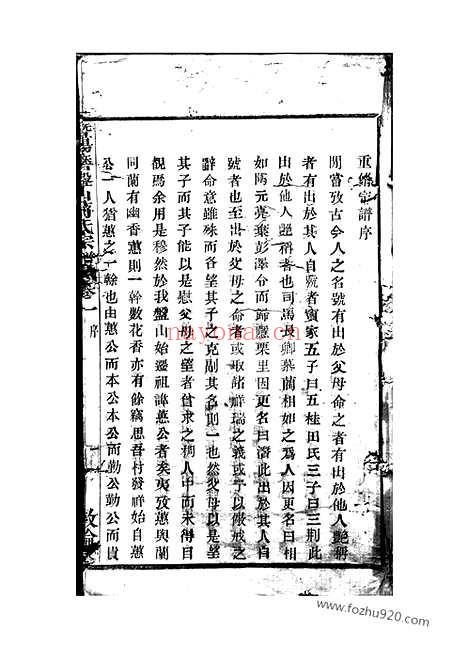 重修宗譜序
間嘗攷古今人之名號有出於父母命之者有出於他人艷稱
者有出於其人自孭者竇家五子曰五桂田氏三子曰三荆此
出於他人艷稱者也司馬長卿慕藺相如之爲人因更名曰相
如陶元亮棄彭澤令而歸隱栗里因更名曰潛此出於其人自
號者也至出於父母之命者或取諸祥瑞之義或予以儆戒之
辭命意雖殊而各望其子之克副其名則一也然父母以是望
其子而其子能以是慰父母之望者嘗求之稠人中而未得目
覩焉余用是穆然於我盤山始遷祖諱蕙公者矣夷攷蕙與蘭
同蘭有幽香蕙則一幹數花香亦有餘竊思吾村發祥始自蕙
公一人猶蕙之一幹也由蕙公而本公本公而勤公勤公而貴
盤山蔣氏宗譜 卷一 序
敦倫
nuyonai.com
www.fozhu920.com